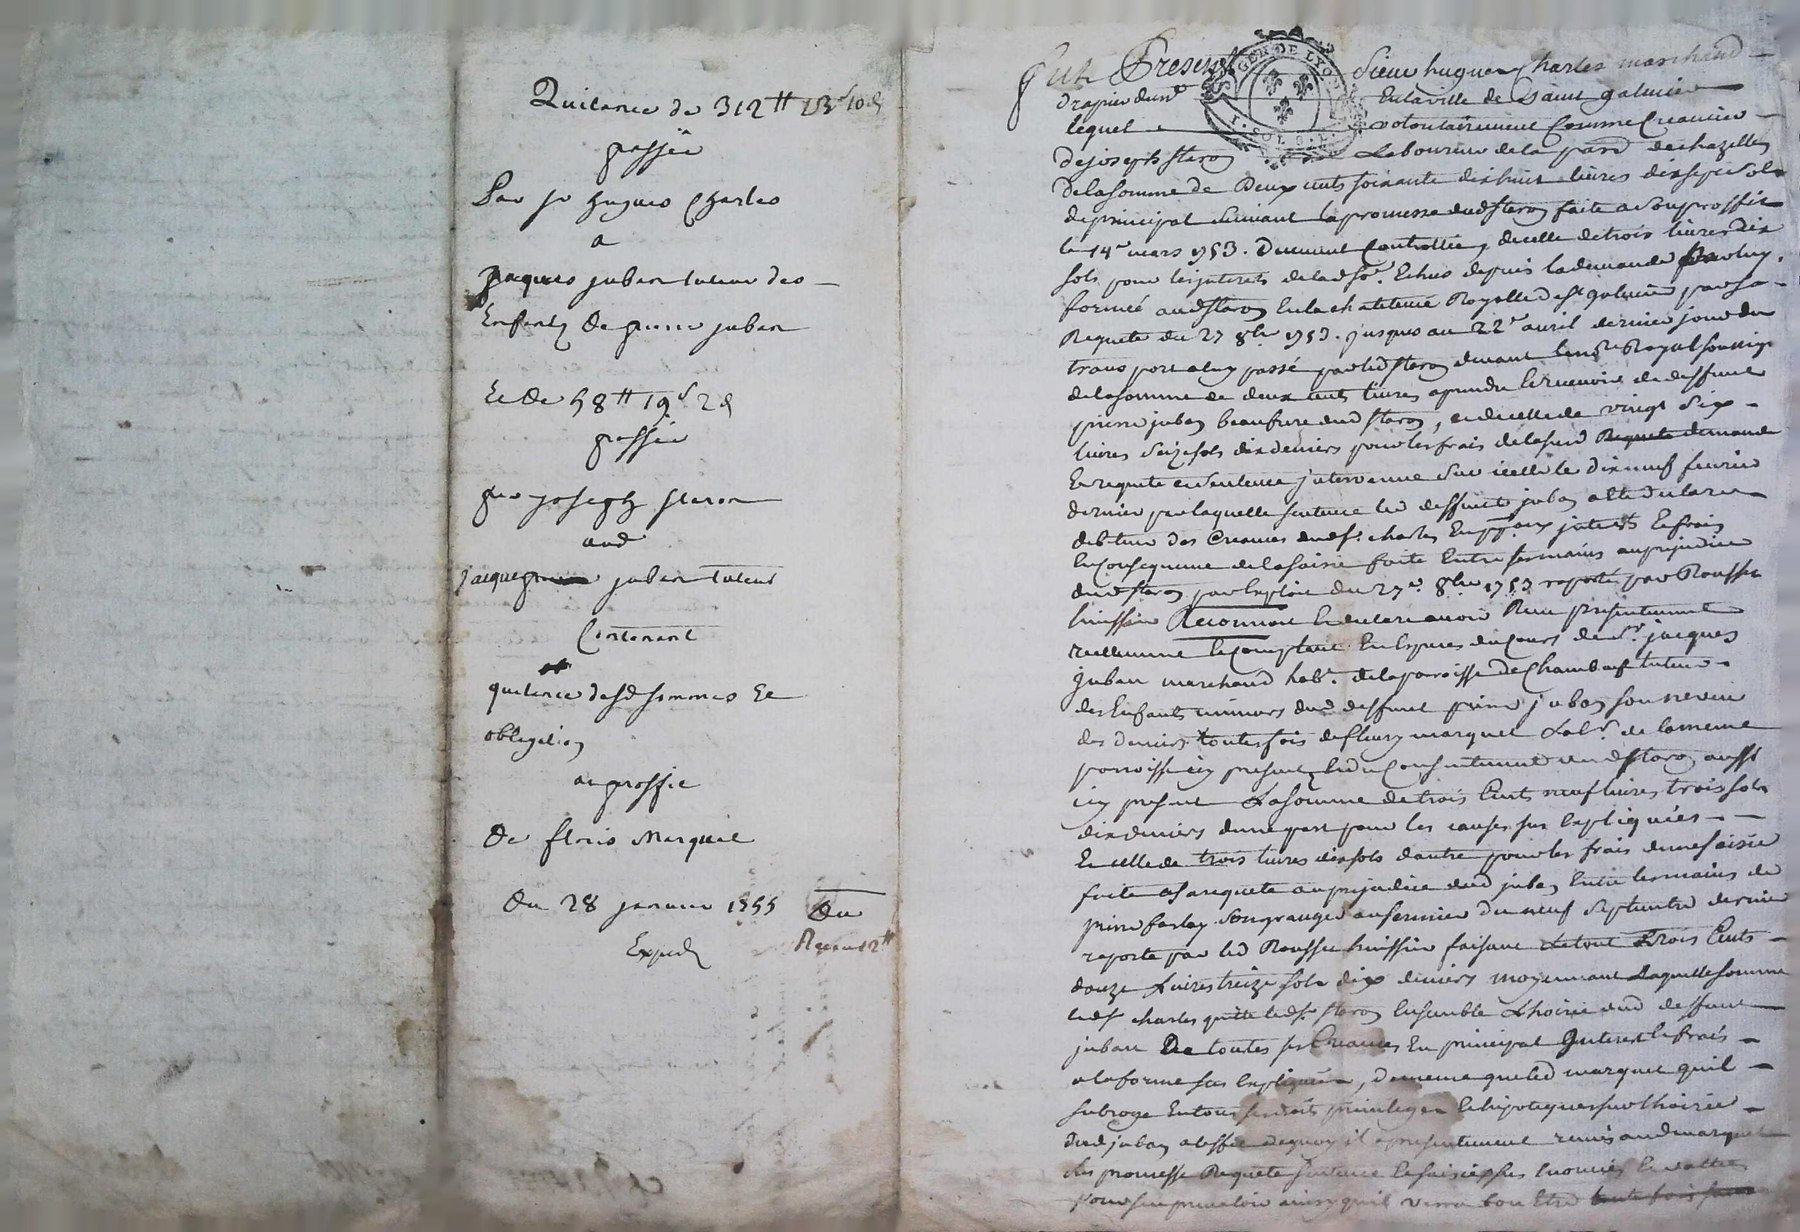 Quitance de 312tt 13s 10d
passée
Par sr hugues Charles
a
Jacques juban tuteur des
Enfents de pierre juban
Et de 58tt 19s 2d
passée
par joseph
aud
jacques juban tuteur
Contenant
quitance desd sommes Et
obligation
au proffit
De floris Marquet
Du 28 janvier 1755
Expedié
GEN DE LYON
Fut Present Sieur hugues Charles marchand
drapier dem en la ville de saint galmier
lequel volontairement Comme Creancier
de joseph Laboureur de la parr de chazelles
de la somme de Deux cents soixante dix huit livres dix sept sols
de principal suivant la promesse dud faite a son proffit
le 14e mars 1753. Duement Controllée, de celle de trois livres dix
sols pour les interets de lad so. Echus depuis la demande par luy
formée aud En la chatelenie Royalle de st galmier par sa
Requete du 27 8bre 1753. jusques au 22e avril dernier jour du
transport a luy passé par led devant le nore Royal soussigné
de la somme de deux cents livres a prendre Et recevoir de deffunt
pierre juban beaufrere dud, et de celle de vingt six
livres seize sols dix deniers pour les frais de
En requete et sentence intervenue sur icelle le dix neuf fevrier
dernier par laquelle sentence led deffunt juban a eté declaré
debiteur des Creances dud sr. charles En ppal interets Et frais
En Consequence de la saisie faite Entre ses mains au prejudice
dud par Exploit du 27e 8bre 1753 raporté par Rousset
huissier Reconnoit Et declare avoir Receu presentement
reellement Et comptant En Especes du Cours de sr jacques
Juban marchand habt. de la parroisse de Chambœuf tuteur
des Enfants mineurs dud deffunt pierre juban son neveu
des deniers toutes fois de fleury marquet Labr. de la meme
parroisse icy present, Et du Consentement dud aussi
icy present La somme de trois Cents neuf livres trois sols
dix deniers d'une part pour les causes sus Expliquées
Et celle de trois livres dix sols d'autre pour les frais d'une saisie
faite a sa requete au prejudice dud juban Entre les mains de
pierre son granger ou fermier du neuf septembre dernier
raporté par led Rousset huissier faisant Le tout Trois Cents
douze Livres treize sols dix deniers moyennant Laquelle somme
led sr charles quitte led sr. Ensemble L'hoirie dud deffunt
juban De toutes ses Creances En principal Interest Et frais
a la forme sus Expliquée, de meme que led marquet qu'il
subroge En tous ses droits privileges Et hipoteques sur l'hoirie
dud juban a l'effet de quoy il a presentement remis aud marquet
les promesse Requete sentence Et saisie